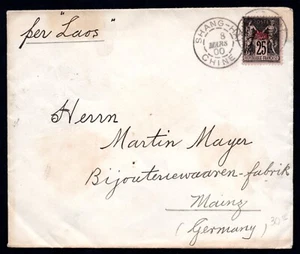 per "Laos"
SHANG-HAI
8
MARS
00
CHINE
25
Herrn
Martin Mayer
Bijouteriewaaren-fabrik
Mainz
(Germany)